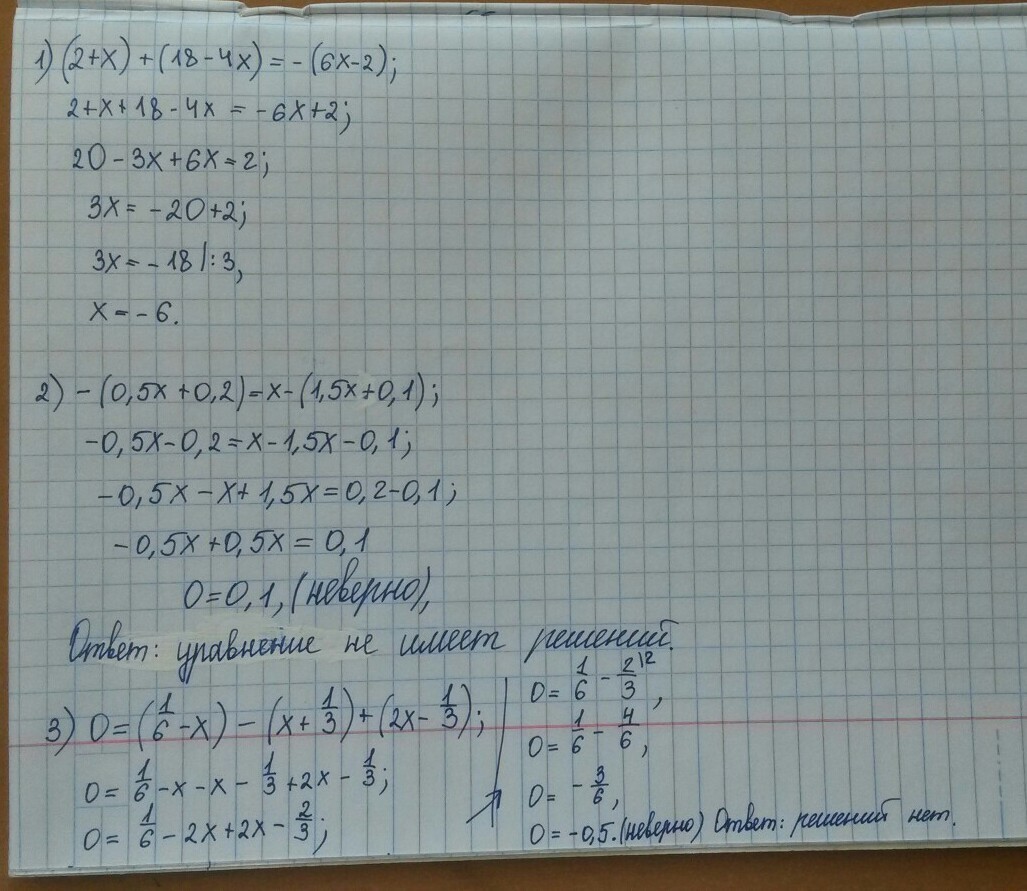 1) (2+x)+(18-4x)=-(6x-2);
2+x+18-4x = -6x+2;
20-3x+6x=2;
3x=-20+2;
3x=-18 |:3,
x=-6.
2) -(0,5x+0,2)=x-(1,5x+0,1);
-0,5x-0,2=x-1,5x-0,1;
-0,5x-x+1,5x=0,2-0,1;
-0,5x+0,5x=0,1
0=0,1, (неверно),
Ответ: уравнение не имеет решений.
3) 0=(1/6-x)-(x+1/3)+(2x-1/3);
0=1/6-x-x-1/3+2x-1/3;
0=1/6-2x+2x-2/3;
0=1/6-2/3 |2,
0=1/6-4/6,
0=-3/6,
0=-0,5. (неверно) Ответ: решений нет.